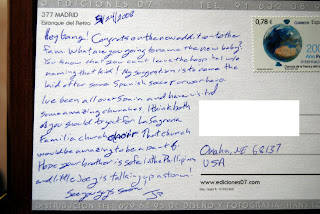 EDICIONES 07
TEL 91 632 36
377 MADRID
Estanque del Retiro
5/24/2008
Hey Gang! Congrats on the new addition to the
Fam. What are you going to name the new baby?
You know that you can't leave the hosp'tal w/o
naming that kid! My suggestion is to name the
kid after some Spanish soccer
I've been all over Spain and have visited
some amazing churches. I think both
of you should to get for La Sagrada
Familia church choir. That church
would be amazing to be a part of.
Hope your brother is safe in the Phillipines
and little Joey is talking up a storm!
See you guys soon
0,78 €
Correos España
Omaha, NE 68137
USA
www.ediciones07.com
DISTRIBUCION TEL 679
FOTOGRAFIA